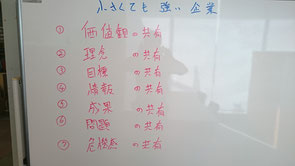 小さくても 強い 企業
① 価値観の共有
② 理念の共有
③ 目標の共有
④ 情報の共有
⑤ 成果の共有
⑥ 問題の共有
⑦ 危機感の共有